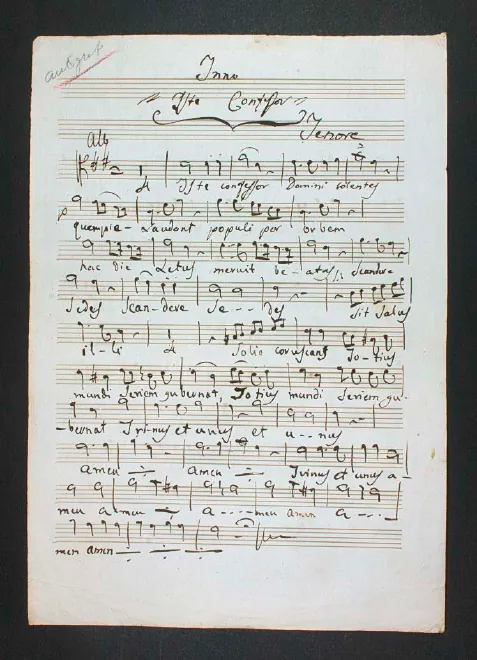 autograf
Inno
Iste Confessor
Tenore
Allo
Iste confessor Domini colentes
quempie - Laudant populi per orbem
hac die Letus meruit be - atas, Scandere
Sedes Scandere Se - - des Sit Salus
il - li Solio coruscans To - tius
mundi Seriem gubernat, Totius mundi Seriem gu -
- bernat Trinus et unus et u - - nus
amen amen Trinus et unus a -
men a men a - - - - men amen a - - -
men amen